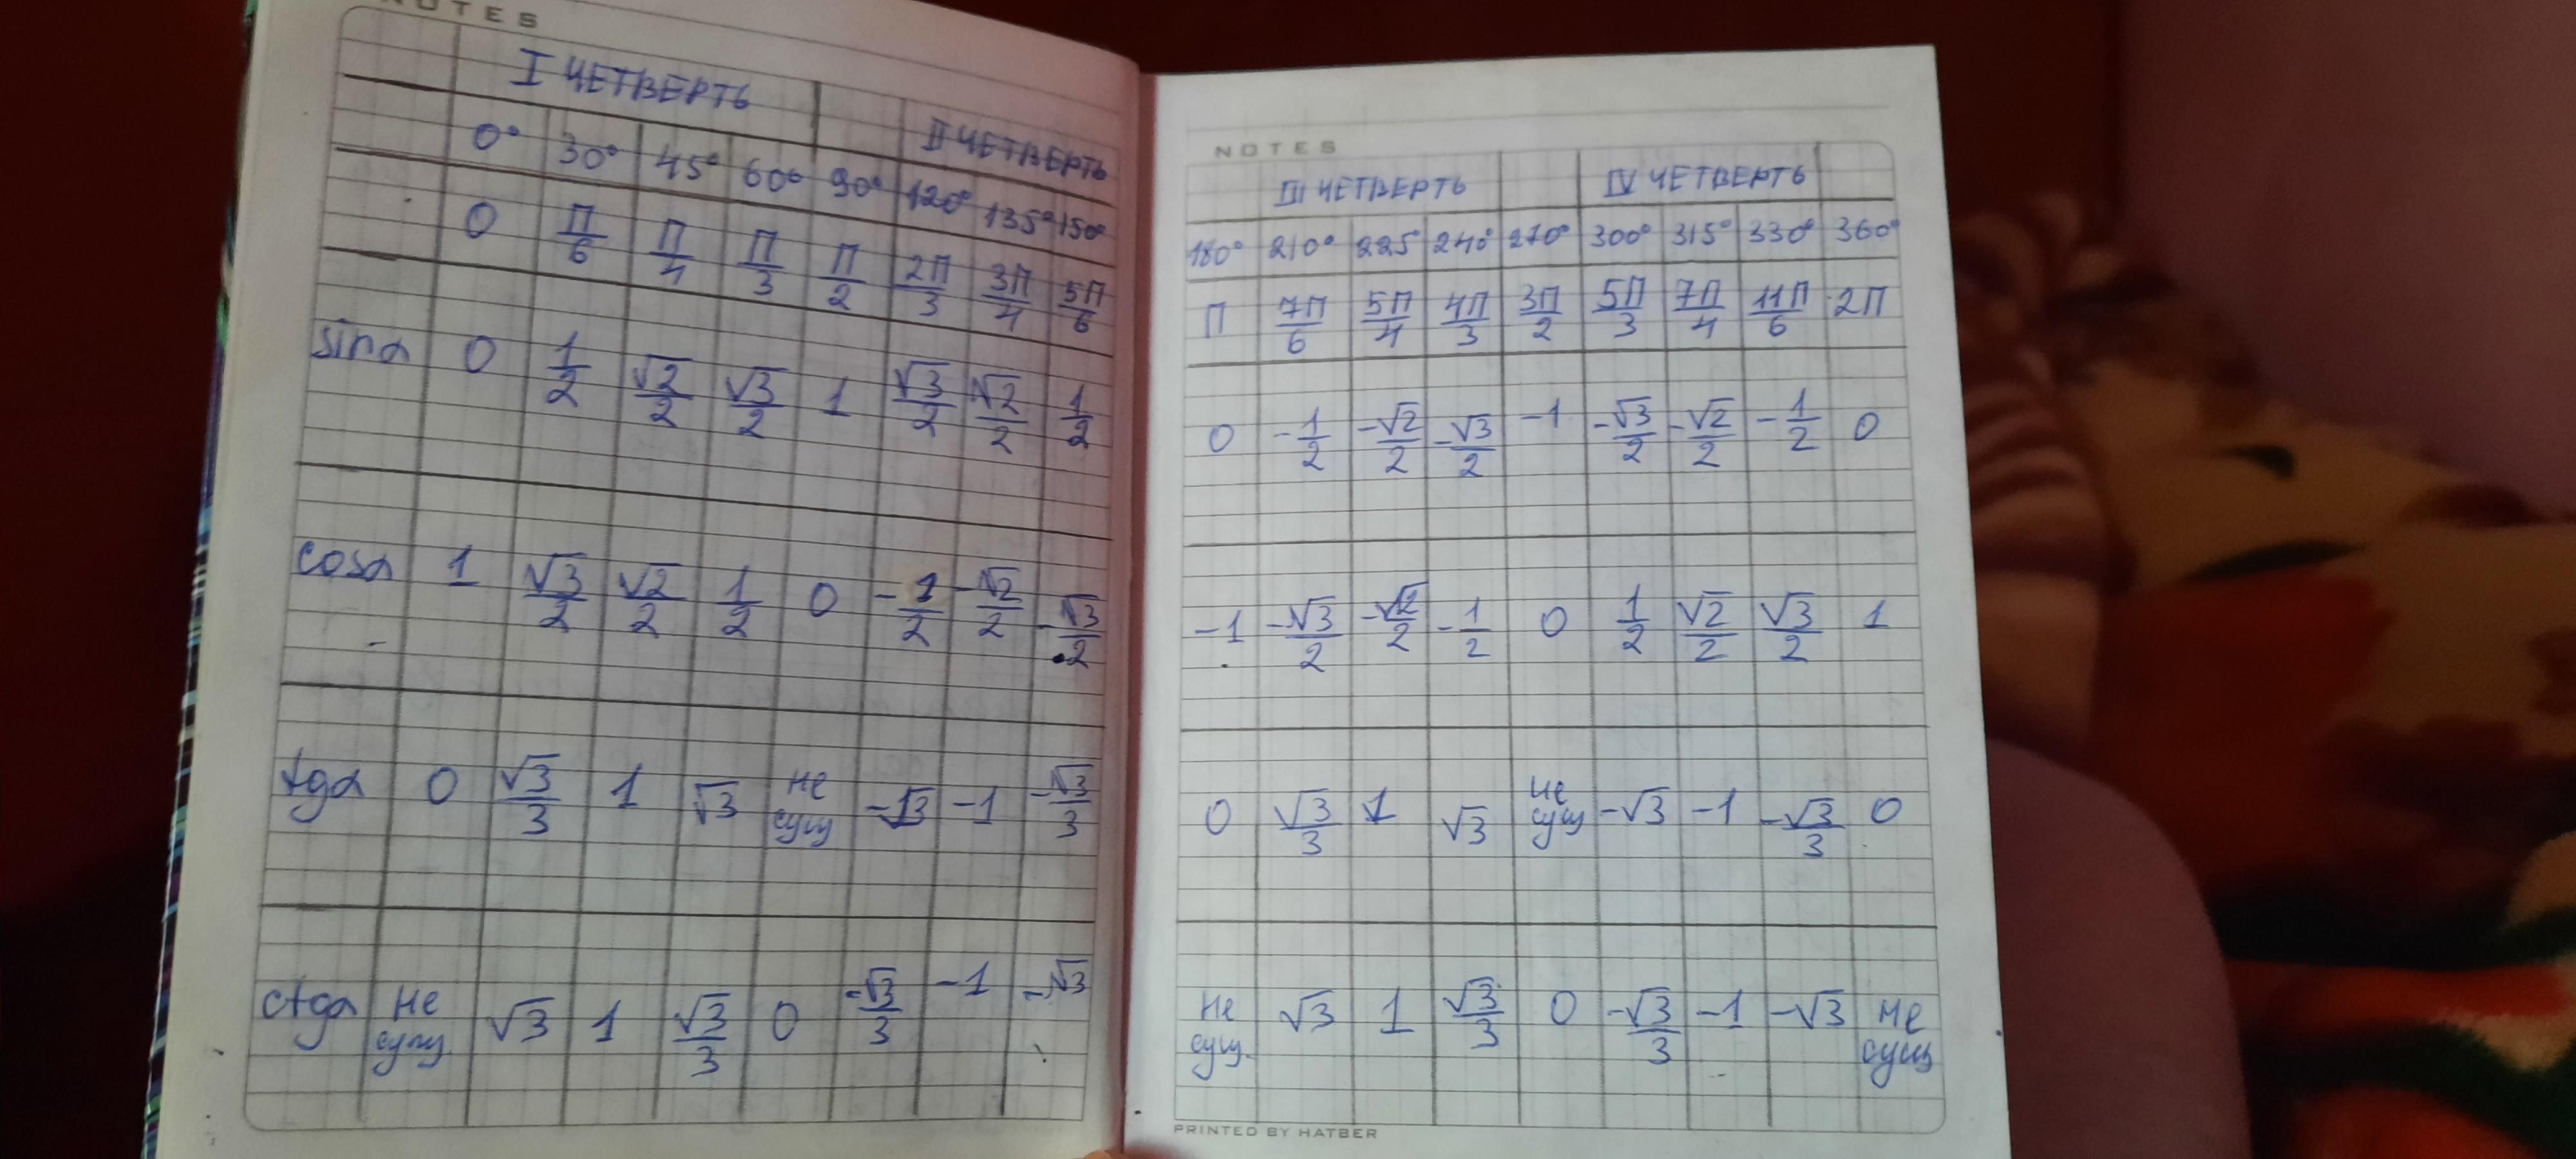 NOTES
I ЧЕТВЕРТЬ II ЧЕТВЕРТЬ
0° 30° 45° 60° 90° 120° 135° 150°
0 П/6 П/4 П/3 П/2 2П/3 3П/4 5П/6
sinα 0 1/2 √2/2 √3/2 1 √3/2 √2/2 1/2
cosα 1 √3/2 √2/2 1/2 0 -1/2 -√2/2 -√3/2
tgα 0 √3/3 1 √3 не сущ -√3 -1 -√3/3
ctgα не сущ. √3 1 √3/3 0 -√3/3 -1 -√3
NOTES
III ЧЕТВЕРТЬ IV ЧЕТВЕРТЬ
180° 210° 225° 240° 270° 300° 315° 330° 360°
П 7П/6 5П/4 4П/3 3П/2 5П/3 7П/4 11П/6 2П
0 -1/2 -√2/2 -√3/2 -1 -√3/2 -√2/2 -1/2 0
-1 -√3/2 -√2/2 -1/2 0 1/2 √2/2 √3/2 1
0 √3/3 1 √3 не сущ -√3 -1 -√3/3 0
не сущ. √3 1 √3/3 0 -√3/3 -1 -√3 не сущ
PRINTED BY HATBER